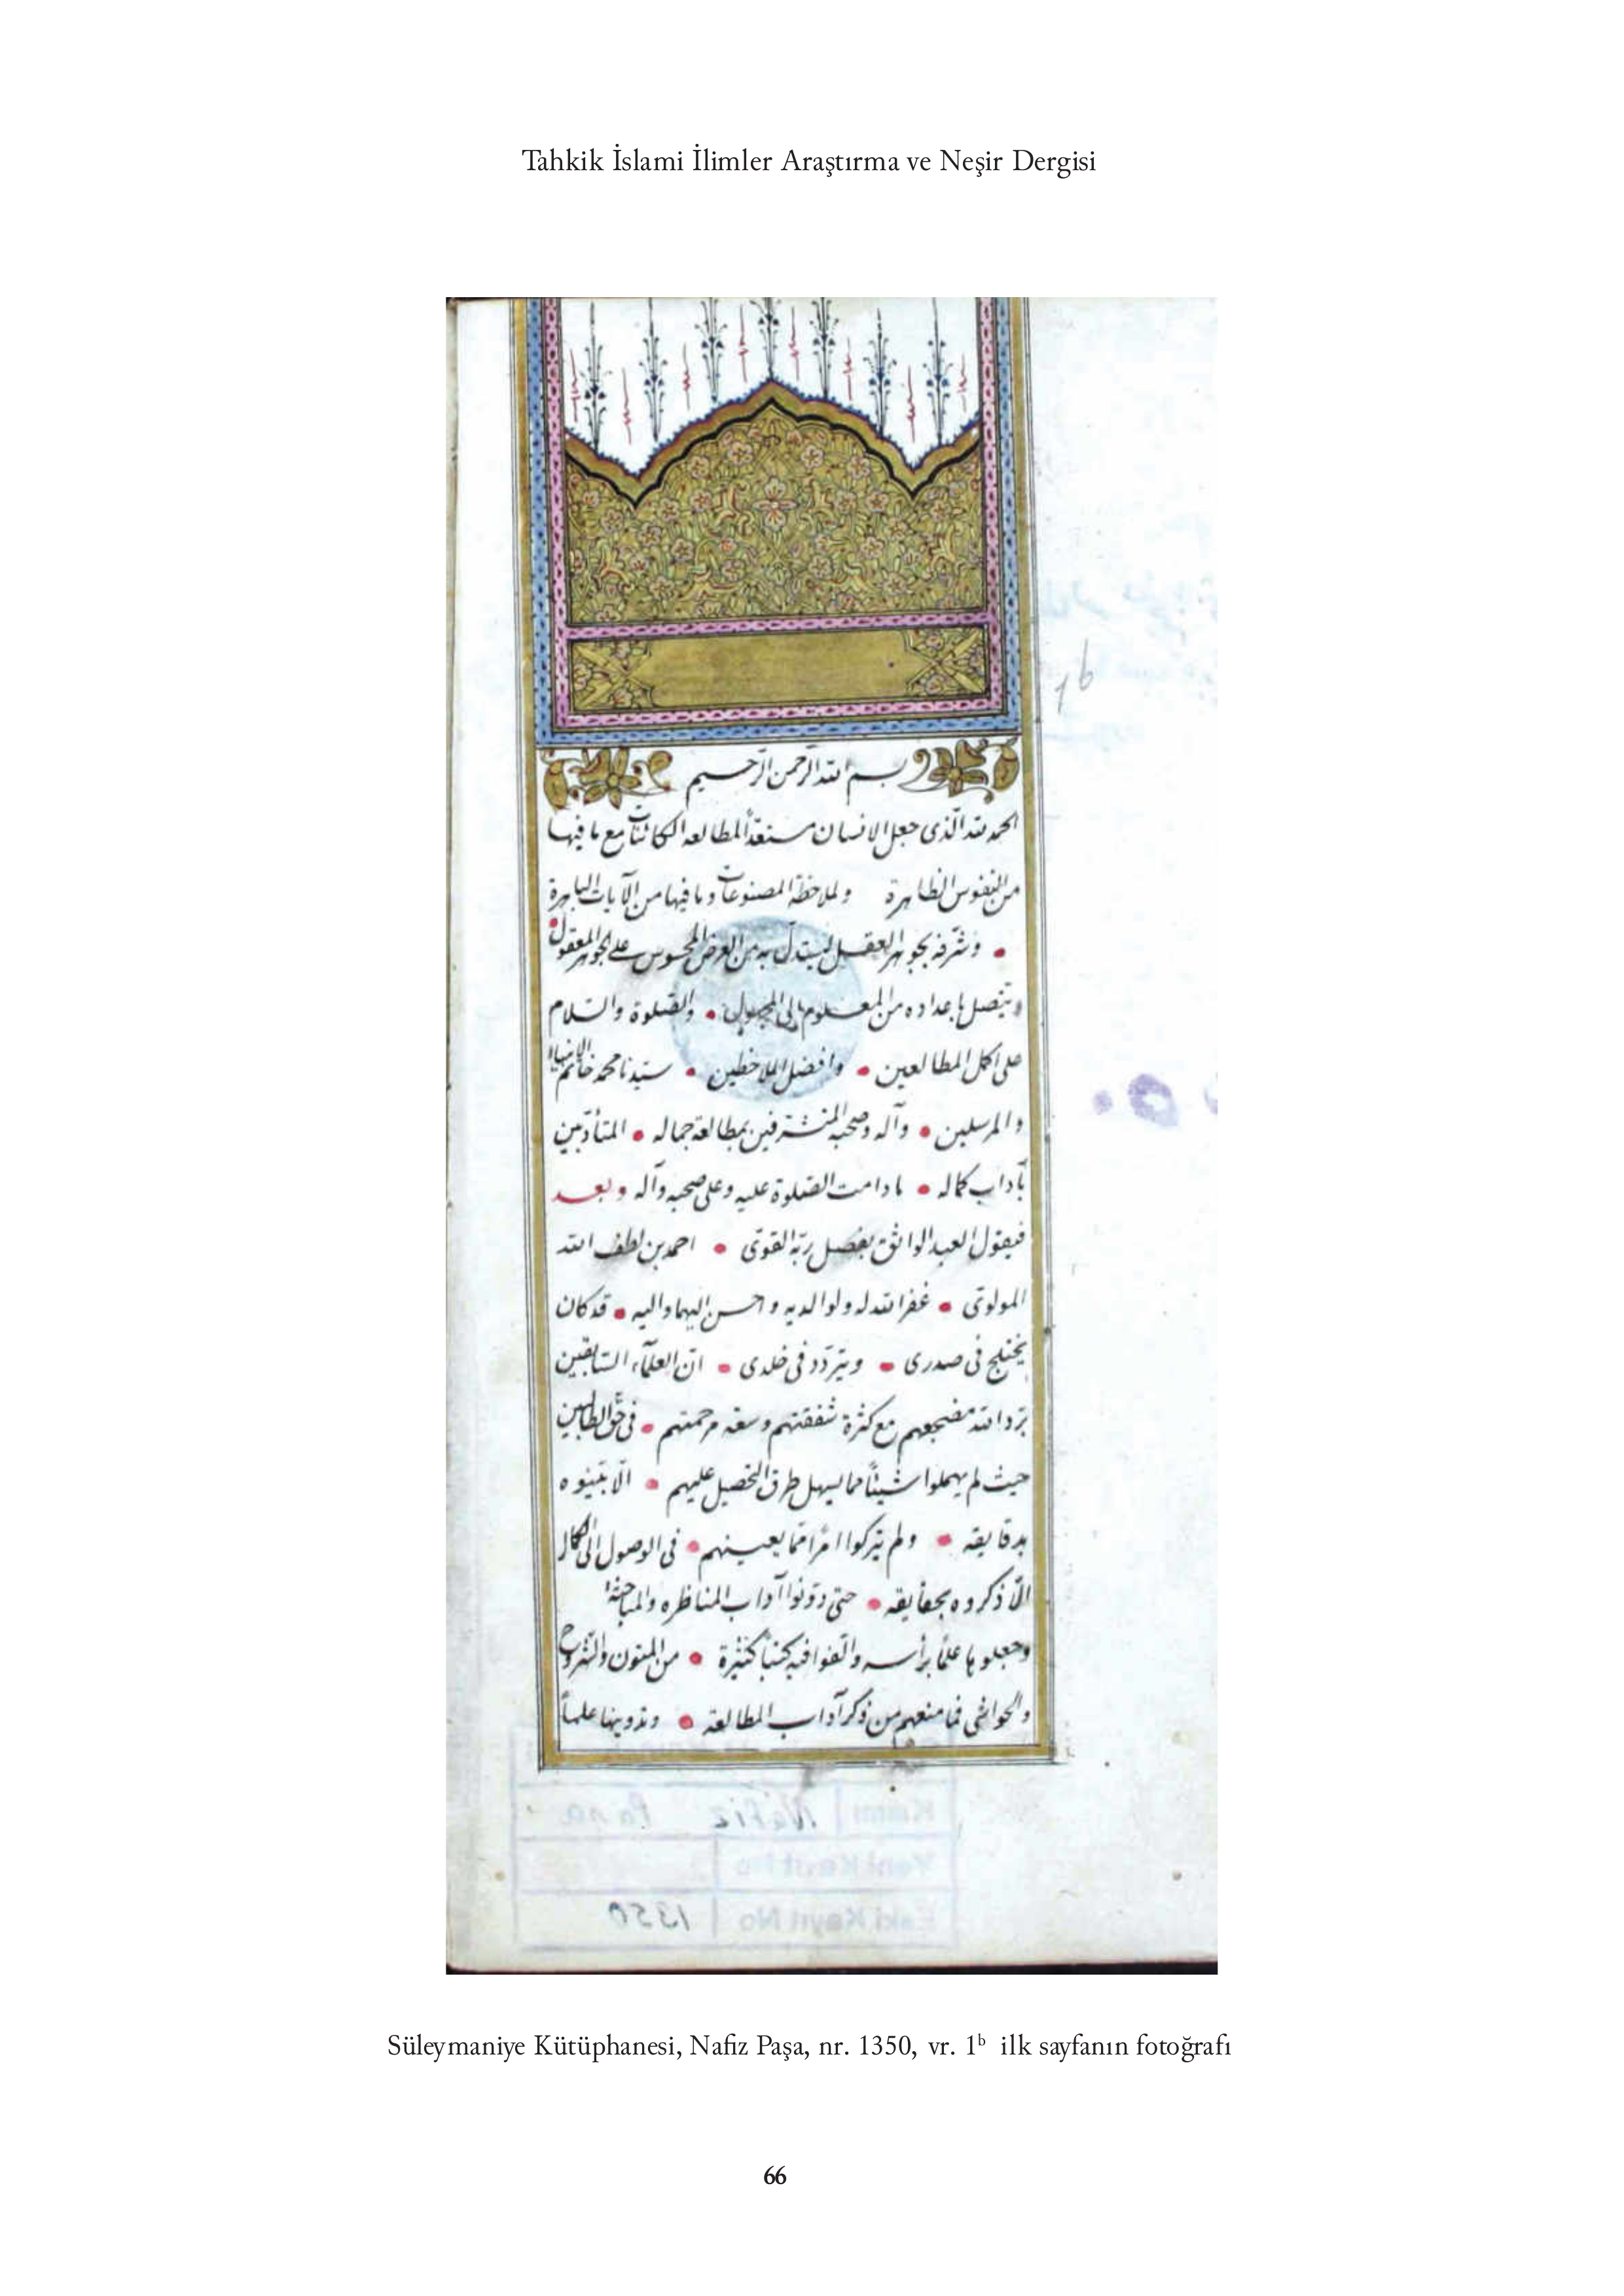 Tahkik İslami İlimler Araştırma ve Neşir Dergisi
1b
بسم الله الرحمن الرحيم
الحمد لله الّذى جعل الانسان مستعدّاً لمطالعه الكائنات مع ما فيها
من النفوس الظاهرة ولملاحظة المصنوعات وما فيها من الآيات الباهرة
وشرّفه بجوهر العقل ليستدلّ به من العرض المحسوس على الجوهر المعقول
ويتصل باعداده من المعلوم الى المجهول والصّلوة والسّلام
على اكمل المطالعين وافضل الملاحظين سيّدنا محمد خاتم الانبيا
والمرسلين وآله وصحبه المتشرفين بمطالعة جماله المتأدّبين
بآداب كماله مادامت الصّلوة عليه وعلى صحبه وآله وبعد
فيقول العبد الواثق بفضل ربّه القوىّ احمد بن لطف الله
المولوىّ غفر الله له ولوالديه واحسن اليهما واليه قد كان
يختلج فى صدرى ويتردّد فى خلدى انّ العلمآء السّابقين
برّد الله مضجعهم مع كثرة شفقتهم وسعة مرحمتهم فى حقّ الطالبين
حيث لم يهملوا شيئاً مما يسهل طرق التحصيل عليهم الّا بيّنوه
بدقايقه ولم يتركوا امراً ممّا يعينهم فى الوصول الى الكمال
الّا ذكروه بحقايقه حتى دوّنوا آداب المناظره والمباحثة
وجعلوها علماً برأسه والّفوا فيه كتباً كثيرة من المتون والشروح
والحواشى فما منعهم من ذكر آداب المطالعة وتدوينها علماً
Kısmı Nafiz Paşa
Yeni Kayıt No
Eski Kayıt No 1350
Süleymaniye Kütüphanesi, Nafiz Paşa, nr. 1350, vr. 1b ilk sayfanın fotoğrafı
66